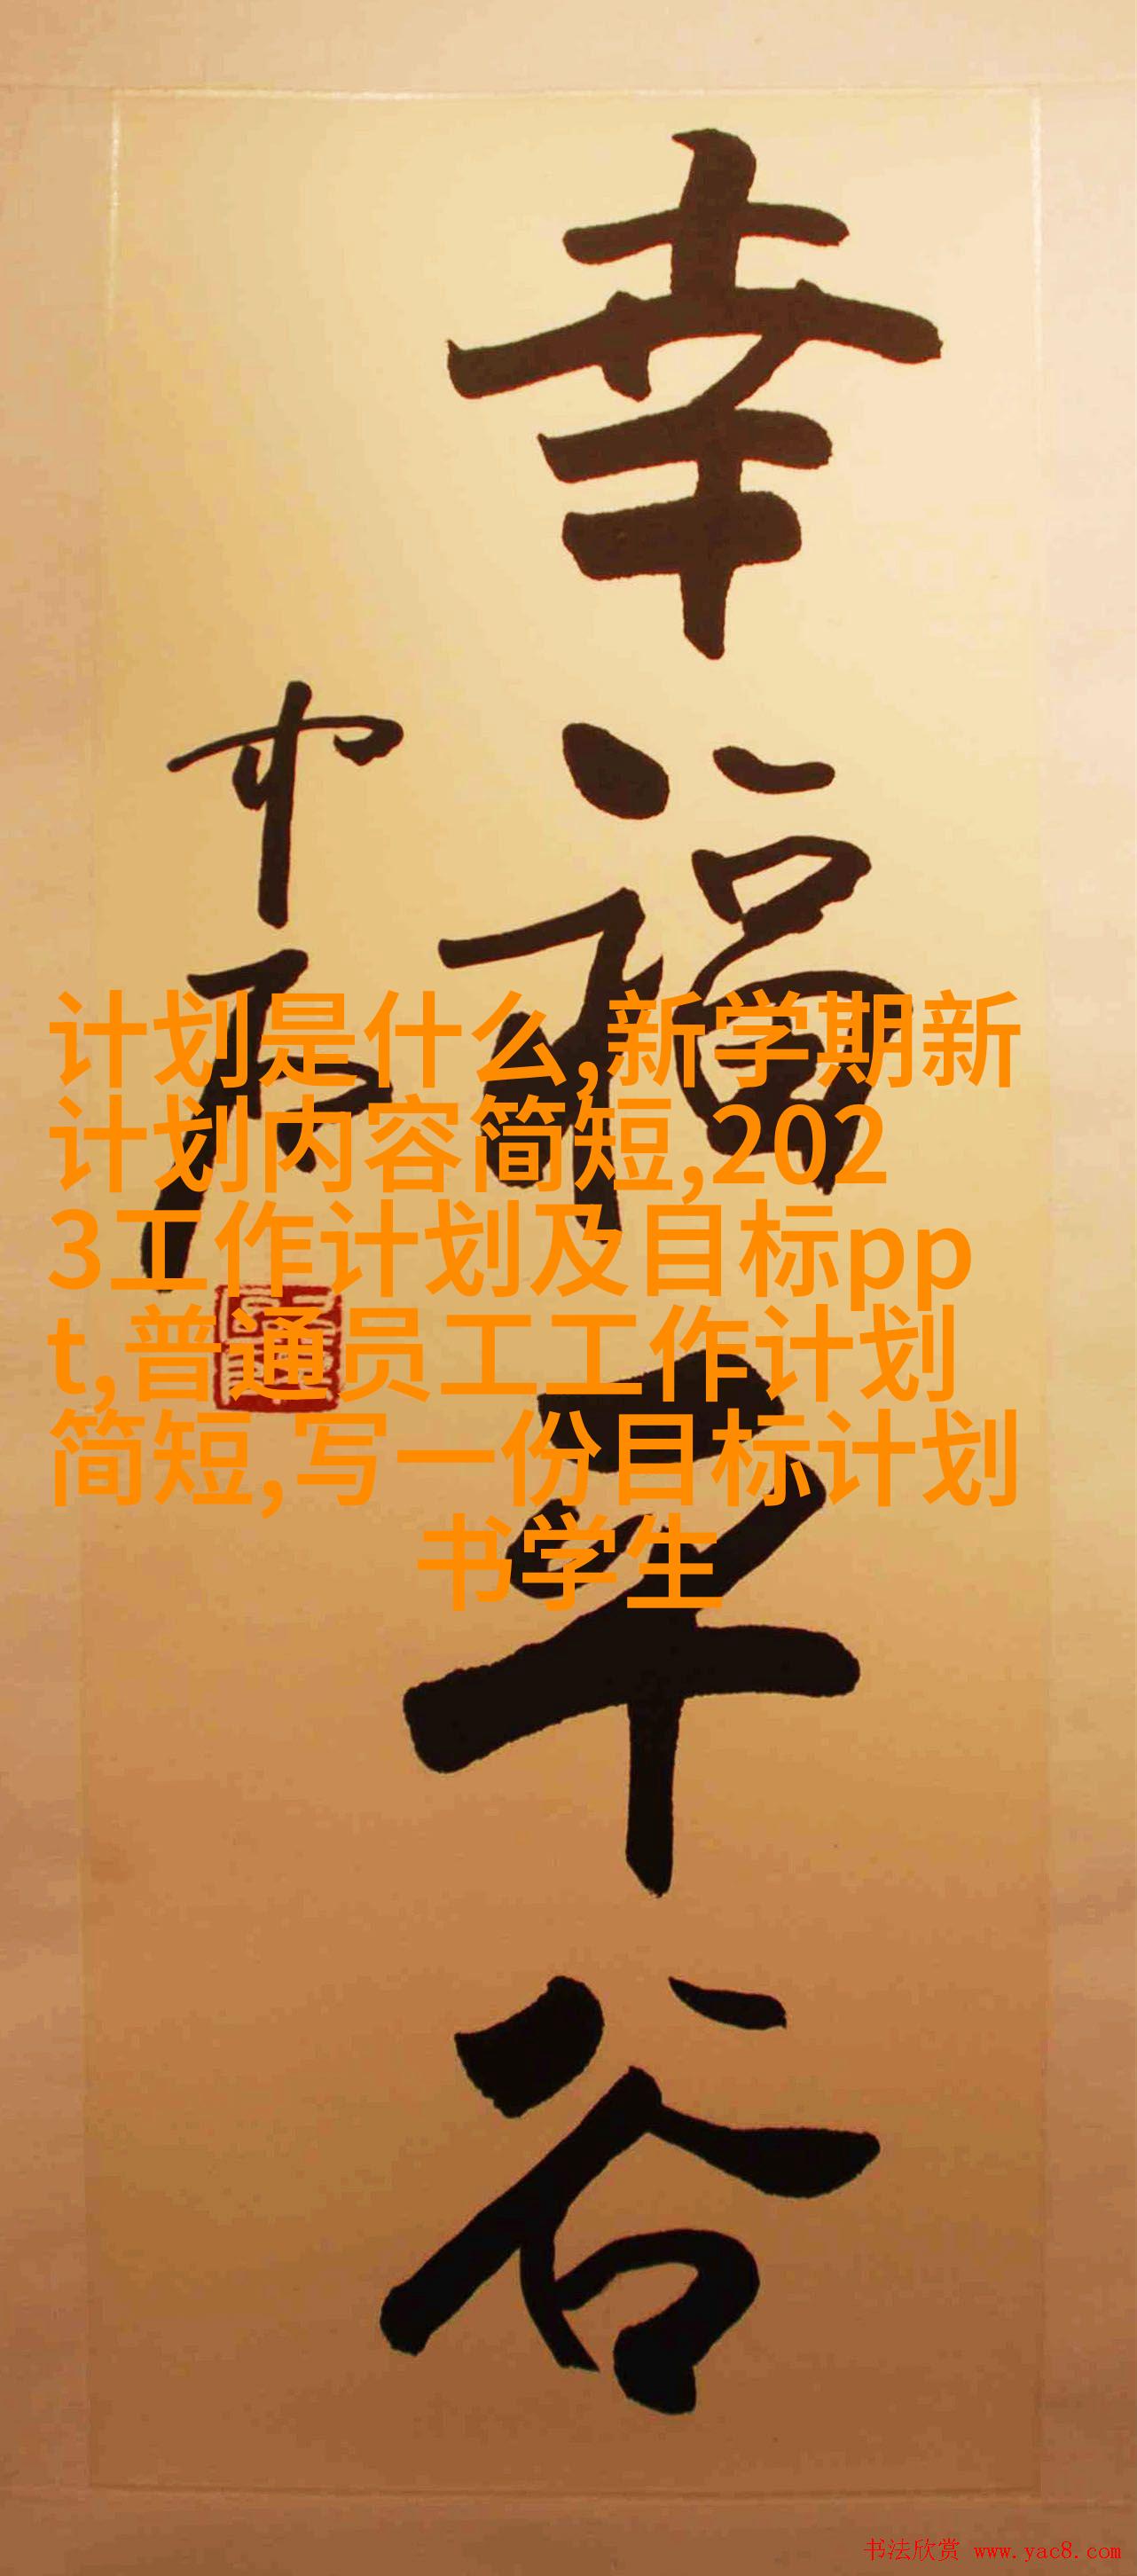 幸福平谷
计划是什么,新学期新
计划内容简短,202
3工作计划及目标pp
t,普通员工工作计划
简短,写一份目标计划
书学生
书法欣赏 www.yac8.com